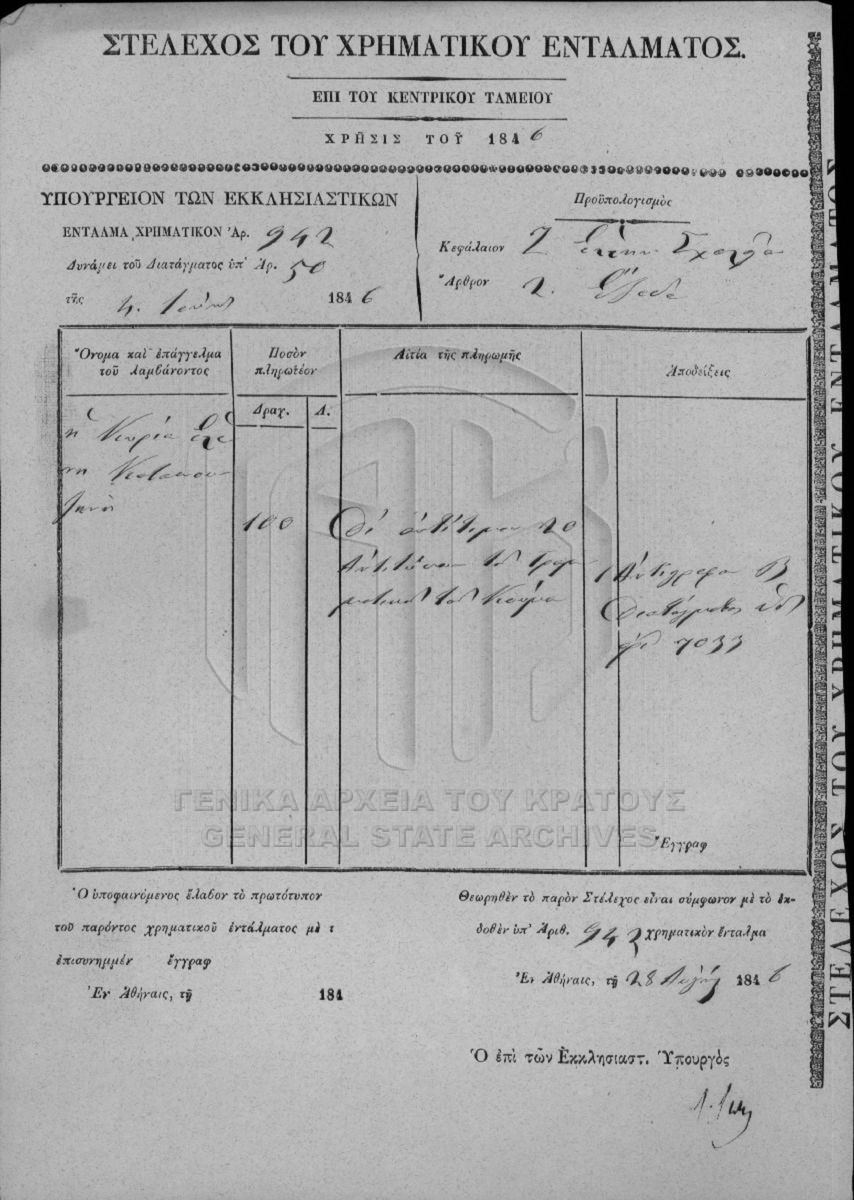 ΣΤΕΛΕΧΟΣ ΤΟΥ ΧΡΗΜΑΤΙΚΟΥ ΕΝΤΑΛΜΑΤΟΣ.
ΕΠΙ ΤΟΥ ΚΕΝΤΡΙΚΟΥ ΤΑΜΕΙΟΥ
ΧΡΗΣΙΣ ΤΟΥ͂ 1846
ΥΠΟΥΡΓΕΙΟΝ ΤΩΝ ΕΚΚΛΗΣΙΑΣΤΙΚΩΝ
ΕΝΤΑΛΜΑ ΧΡΗΜΑΤΙΚΟΝ Ἀρ. 942
Δυνάμει τοῦ Διατάγματος ὑπ' Ἀρ. 50
τῆς 4 1846
Προϋπολογισμὸς
Κεφάλαιον
Ἄρθρον 2. Ἔξοδα
Ὄνομα καὶ ἐπάγγελμα
τοῦ λαμβάνοντος
Ποσὸν
πληρωτέον
Αἰτία τῆς πληρωμῆς
Ἀποδείξεις
Δραχ. Λ.
ἡ Κυρία
100
ἀντίτιμον 20
ἀντιτύπων τοῦ
τοῦ
Ἀντίγραφον Β
Διατάγματος ὑπ
7033
ΓΕΝΙΚΑ ΑΡΧΕΙΑ ΤΟΥ ΚΡΑΤΟΥΣ
GENERAL STATE ARCHIVES
Ἔγγραφ
Ὁ ὑποφαινόμενος ἔλαβον τὸ πρωτότυπον
τοῦ παρόντος χρηματικοῦ ἐντάλματος μὲ τ
ἐπισυνημμέν ἔγγραφ
Ἐν Ἀθήναις, τῇ 184
Θεωρηθὲν τὸ παρὸν Στέλεχος εἶναι σύμφωνον μὲ τὸ ἐκ-
δοθὲν ὑπ' Ἀριθ. 942 χρηματικὸν ἔνταλμα
Ἐν Ἀθήναις, τῇ 28 1846
Ὁ ἐπὶ τῶν Ἐκκλησιαστ. Ὑπουργὸς
ΣΤΕΛΕΧΟΣ ΤΟΥ ΧΡΗΜΑΤΙΚΟΥ ΕΝΤΑΛΜΑΤΟΣ